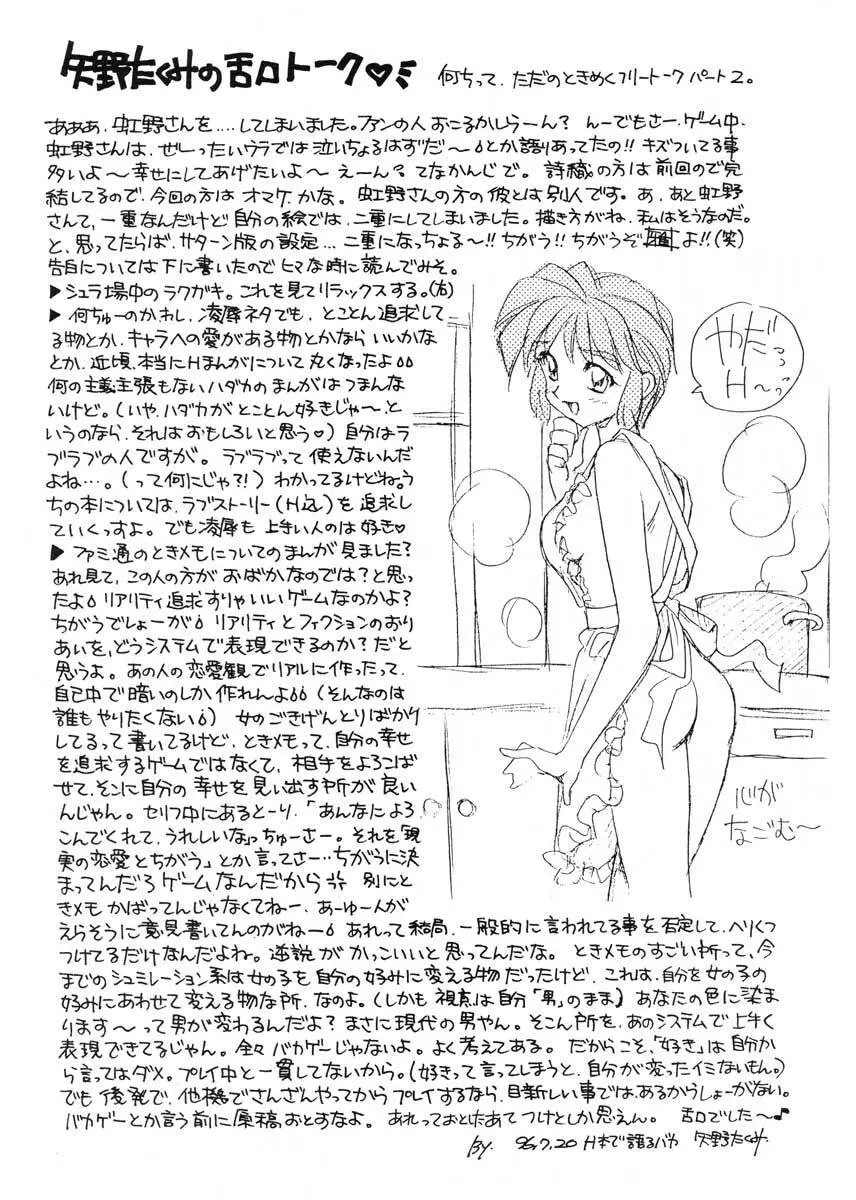 矢野たくみの舌口トーク♡ミ
何ちって、ただのときめくフリートークパート2。
あぁあぁ、虹野さんを....してしまいました。ファンの人おこるかしらーん? んーでもさー、ゲーム中、
虹野さんは、ぜーったいウラでは泣いちょるはずだ〜とか語りあってたの!! キズついてる事
多いよ〜幸せにしてあげたいよ〜えーん? てなかんじで。詩織の方は前回ので完
結してるので、今回の方はオマケかな。虹野さんの方の彼とは別人です。あ、あと虹野
さんて、一重なんだけど自分の絵では、二重にしてしまいました。描き方がね、私はそうなのだ。
と、思ってたらば、サターン版の設定...二重になっちょる〜!! ちがう!! ちがうぞ よ!!(笑)
告白については下に書いたのでヒマな時に読んでみそ。
▶シュラ場中のラクガキ。これを見てリラックスする。(右)
▶何ちゅーのかわし、凌辱ネタでも、とことん追求して
る物とか、キャラへの愛がある物とかなら いいかな
とか、近頃、本当にHまんがについて丸くなったよ
何の主義主張もないハダカのまんがはつまんな
いけど。(いや、ハダカがとことん好きじゃ〜と
いうのなら、それはおもしろいと思う♡) 自分はラ
ブラブの人ですが。ラブラブって使えないんだ
よね...。(って何にじゃ?!) わかってるけどね。う
ちの本については、ラブストーリー(H込)を追求し
ていくっすよ。でも凌辱も上手い人のは好き♡
▶ファミ通のときメモについてのまんが見ました?
あれ見て、この人の方がおばかなのでは?と思っ
たよ リアリティ追求すりゃいいゲームなのかよ?
ちがうでしょーが リアリティとフィクションのおり
あいを、どうシステムで表現できるのか?だと
思うよ。あの人の恋愛観でリアルに作ったって、
自己中で暗いのしか作れんよ(そんなのは
誰もやりたくない) 女のごきげんとりばかり
してるって書いてるけど、ときメモって、自分の幸せ
を追求するゲームではなくて、相手をよろこば
せて、そこに自分の幸せを見い出す所が良い
んじゃん。セリフ中にあるとーり、「あんなによろ
こんでくれて、うれしいな」っちゅーさー。それを「現
実の恋愛とちがう」とか言ってさー‥ちがうに決
まってんだろゲームなんだから 別にと
きメモ かばってんじゃなくてねー、あーゆー人が
えらそうに意見書いてんのがねー あれって結局、一般的に言われてる事を否定して、へりくつ
つけてるだけなんだよね。逆説がかっこいいと思ってんだな。ときメモのすごい所って、今
までのシュミレーション系は女の子を自分の好みに変える物だったけど、これは、自分を女の子の
好みにあわせて変える物な所、なのよ。(しかも視点は自分「男」のまま) あなたの色に染ま
ります〜って男が変わるんだよ? まさに現代の男やん。そこん所を、あのシステムで上手く
表現できてるじゃん。全々バカゲーじゃないよ。よく考えてある。だからこそ、「好き」は自分か
ら言ってはダメ。プレイ中と一貫してないから。(好きって言ってしまうと、自分が変ったイミないもん。)
でも後発で、他機でさんざんやってからプレイするなら、目新しい事では、あるからしょーがない。
バカゲーとか言う前に原稿おとすなよ。あれっておとしたあてつけとしか思えん。 舌口でした〜♪
By. 96,7,20 H本で語るバカ 矢野たくみ
やだっっ
H〜っっ
心が
なごむ〜